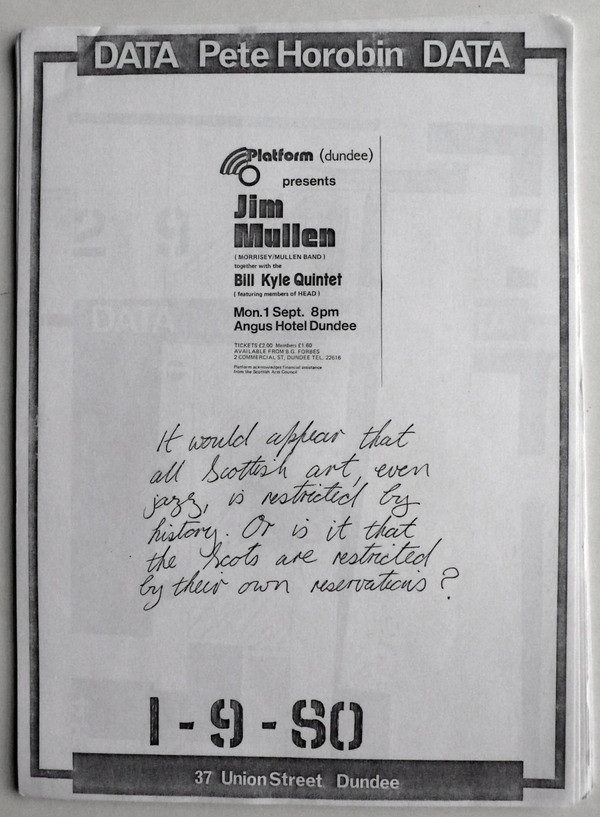 DATA Pete Horobin DATA
Platform (dundee)
presents
Jim
Mullen
(MORRISEY/MULLEN BAND)
together with the
Bill Kyle Quintet
(featuring members of HEAD)
Mon.1 Sept. 8pm
Angus Hotel Dundee
TICKETS £2.00 Members £1.60
AVAILABLE FROM B.G. FORBES
2 COMMERCIAL ST. DUNDEE TEL. 22616
Platform acknowledges financial assistance
from the Scottish Arts Council
It would appear that
all Scottish art, even
jazz, is restricted by
history. Or is it that
the Scots are restricted
by their own reservations?
1-9-80
37 Union Street Dundee